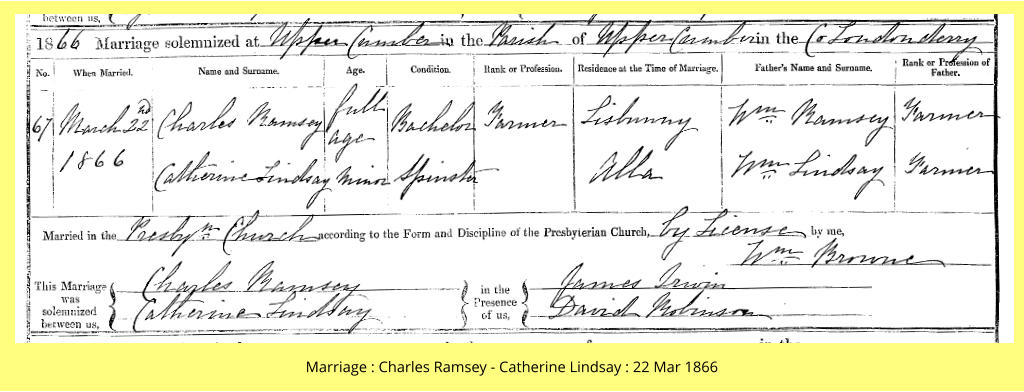 between us,
1866 Marriage solemnized at Upper Cumber in the Parish of Upper Cumber in the Co Londonderry
No. When Married. Name and Surname. Age. Condition. Rank or Profession. Residence at the Time of Marriage. Father's Name and Surname. Rank or Profession of Father.
67 March 22nd 1866 Charles Ramsey full age Bachelor Farmer Lisbunny Wm Ramsey Farmer
Catherine Lindsay minor Spinster Alla Wm Lindsay Farmer
Married in the Presbyn Church according to the Form and Discipline of the Presbyterian Church, by License by me,
Wm Browne
This Marriage was solemnized between us, Charles Ramsey Catherine Lindsay in the Presence of us, James Irwin David Robinson
Marriage : Charles Ramsey - Catherine Lindsay : 22 Mar 1866